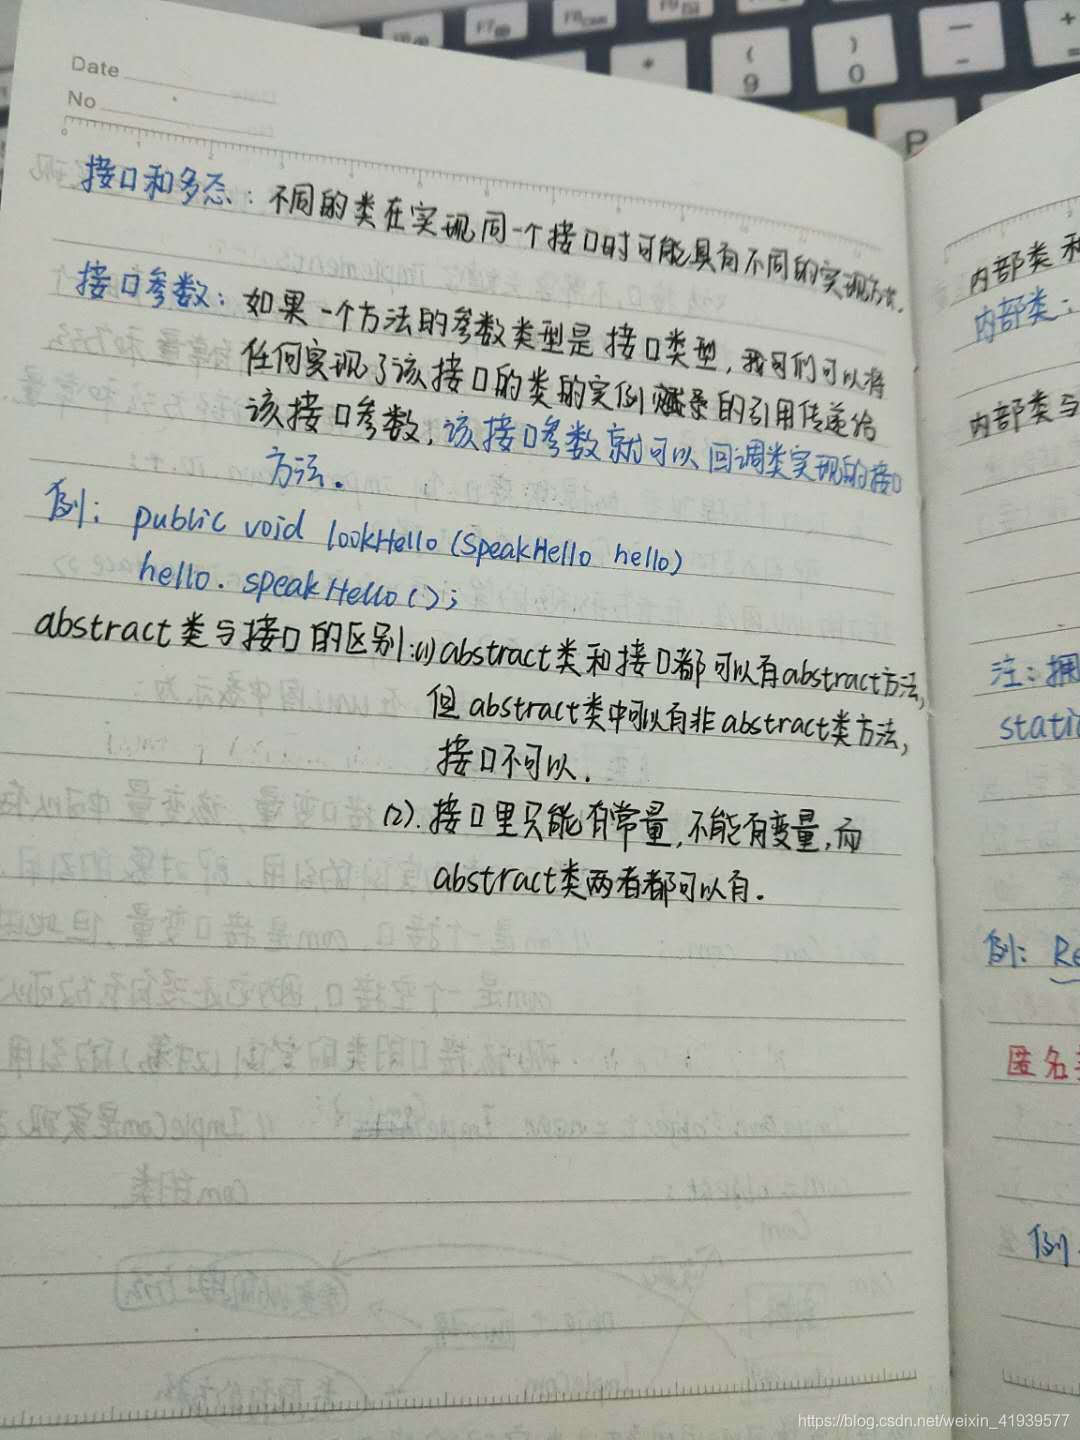 Date
No
接口和多态：不同的类在实现同一个接口时可能具有不同的实现方式.
接口参数：如果一个方法的参数类型是接口类型，我们可以将
任何实现了该接口的类的实例的引用传递给
该接口参数，该接口参数就可以回调类实现的接口
方法.
例：public void lookHello (SpeakHello hello)
hello.speakHello();
abstract类与接口的区别:(1) abstract类和接口都可以有abstract方法,
但abstract类中可以有非abstract类方法,
接口不可以.
(2).接口里只能有常量,不能有变量,而
abstract类两者都可以有.
内部类和
内部类：
内部类与
注：拥
static
例：Re
匿名类
例:
https://blog.csdn.net/weixin_41939577